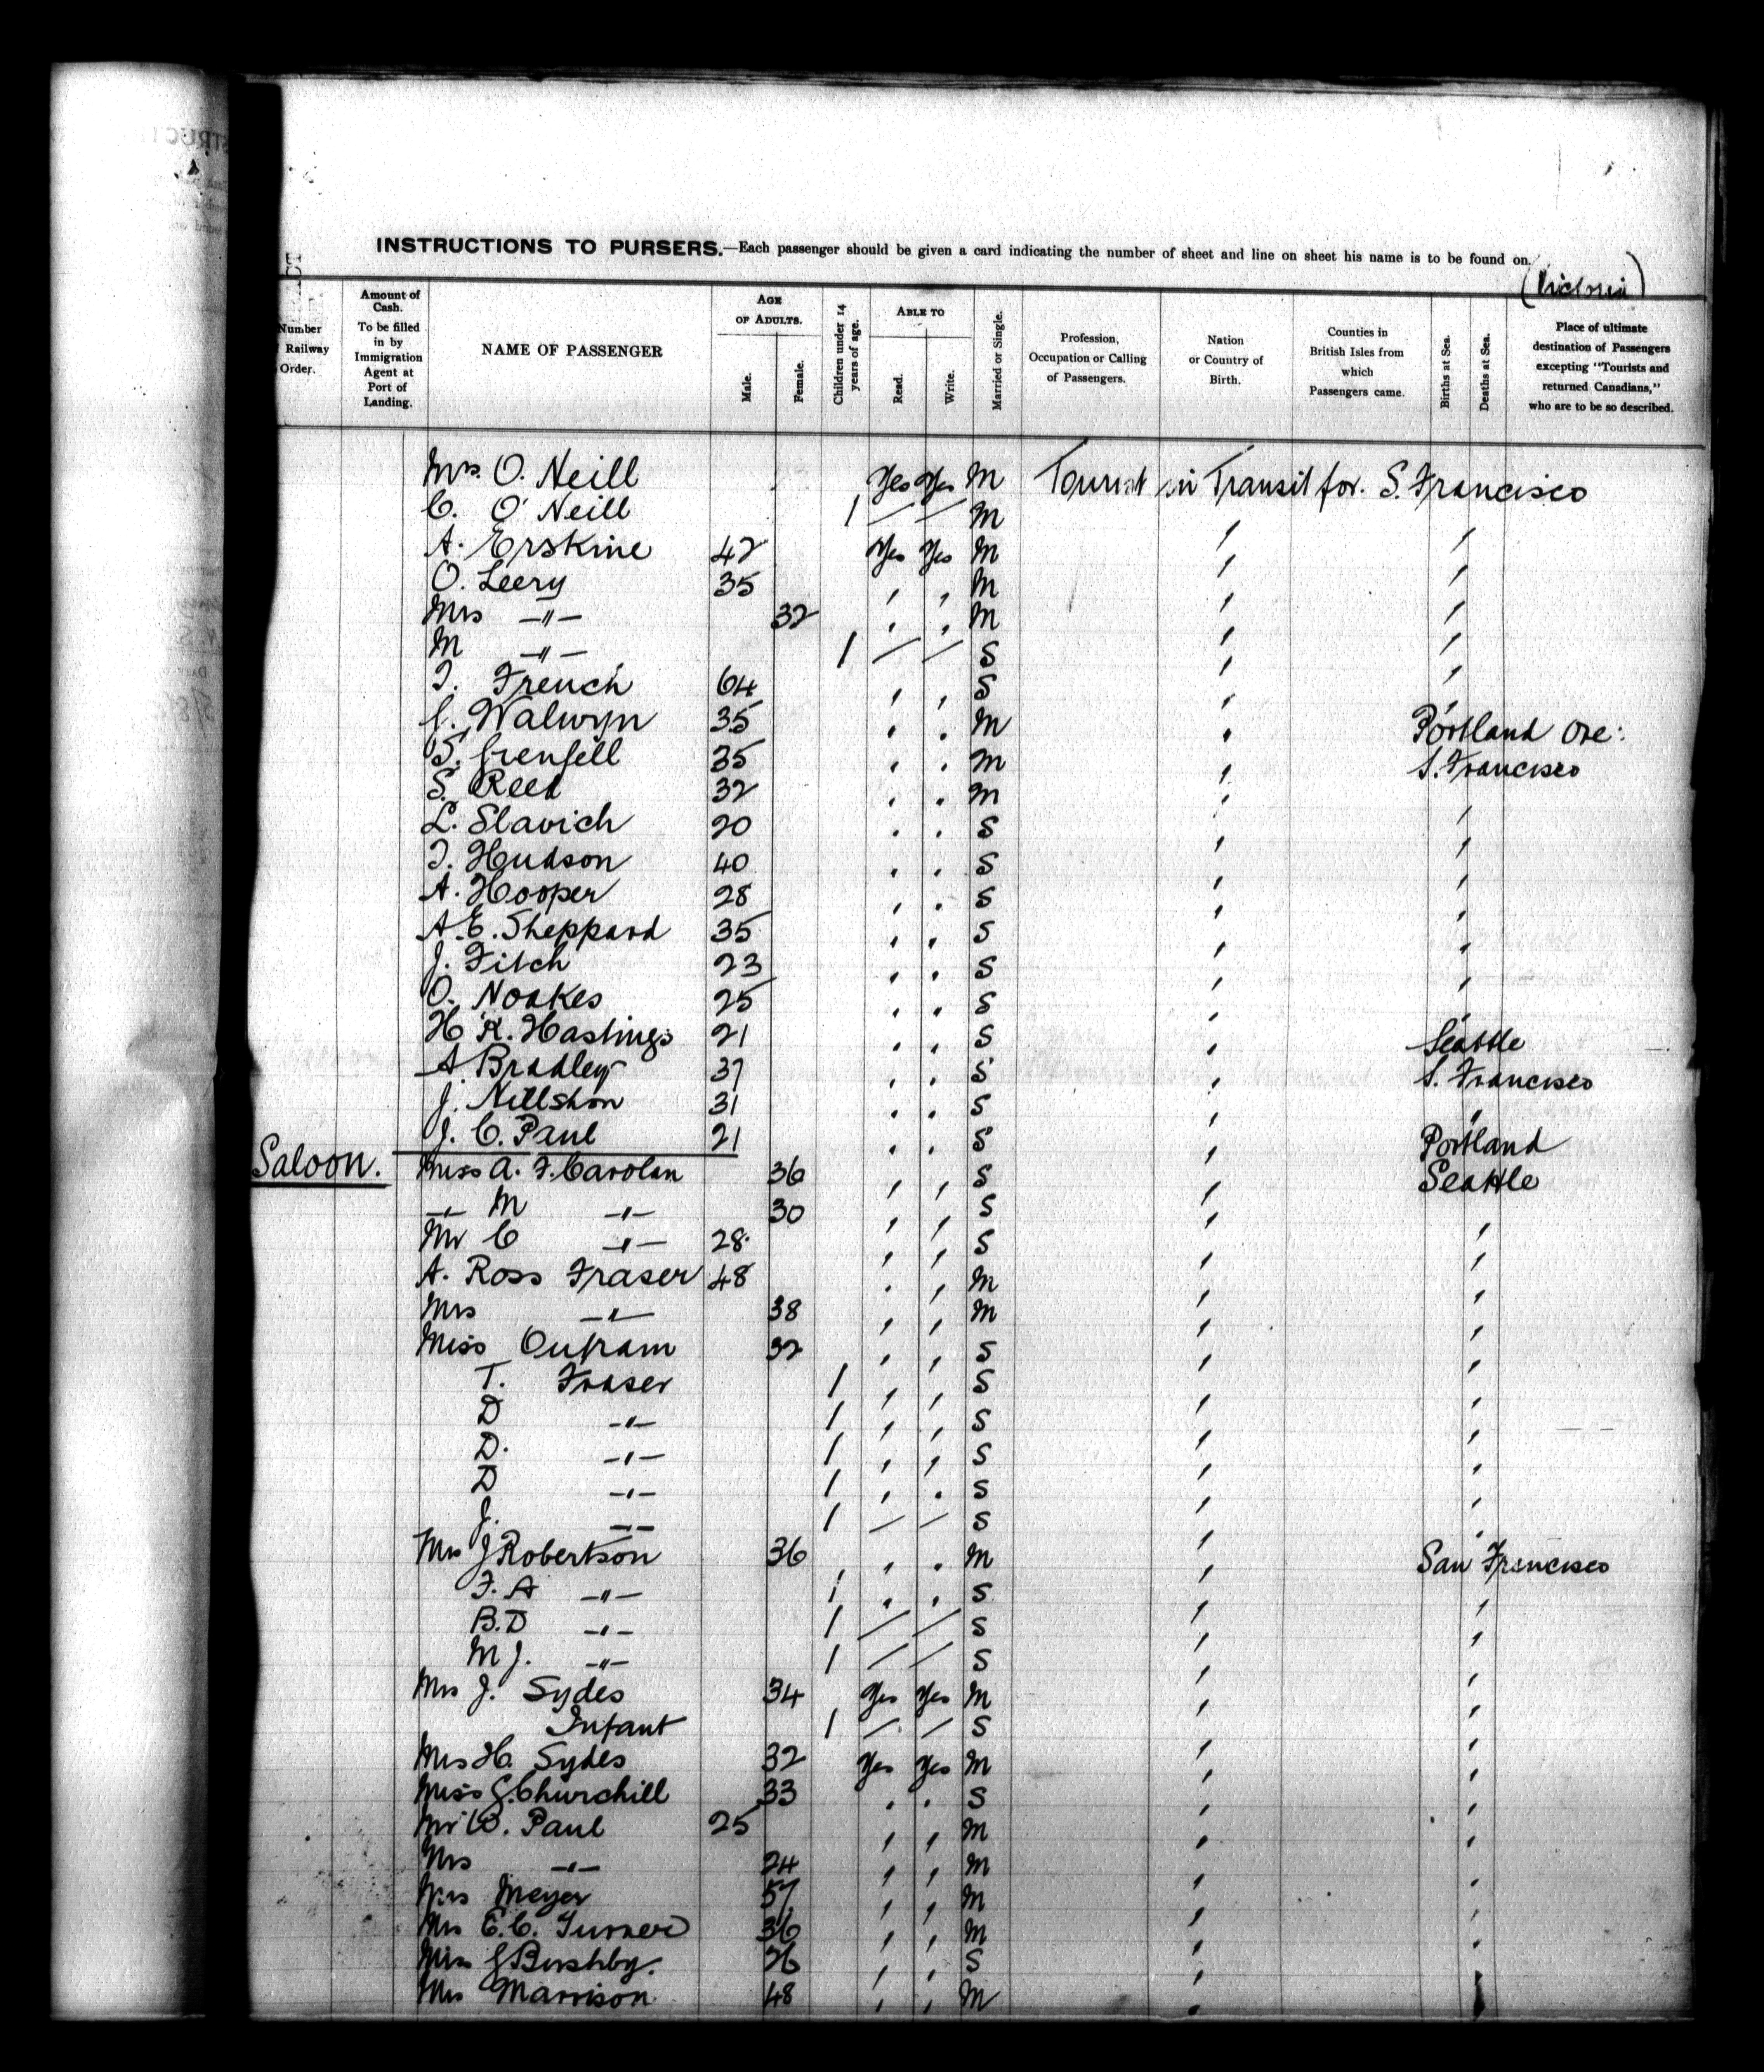 INSTRUCTIONS TO PURSERS.—Each passenger should be given a card indicating the number of sheet and line on sheet his name is to be found on.
(Victoria)
Number Railway Order.
Amount of Cash. To be filled in by Immigration Agent at Port of Landing.
NAME OF PASSENGER
AGE OF ADULTS.
Male.
Female.
Children under 14 years of age.
ABLE TO
Read.
Write.
Married or Single.
Profession, Occupation or Calling of Passengers.
Nation or Country of Birth.
Counties in British Isles from which Passengers came.
Births at Sea.
Deaths at Sea.
Place of ultimate destination of Passengers excepting "Tourists and returned Canadians," who are to be so described.
Mrs. O. Neill Yes Yes M Tourist in Transit for. S. Francisco
C. O' Neill 1 / / M
A. Erskine 42 Yes Yes M
O. Leery 35 " " M
Mrs -"- 32 " " M
M -"- 1 / / S
T. French 64 " " S
Walwyn 35 " " M Portland Ore:
Grenfell 35 " " M S. Francisco
S. Reed 32 " " M
L. Slavich 20 " " S
T. Hudson 40 " " S
A. Hooper 28 " " S
A. E. Sheppard 35 " " S
J. Fitch 23 " " S
O. Noakes 25 " " S
H K. Hastings 21 " " S Seattle
A Bradley 37 " " S S. Francisco
J. Nillshon 31 " " S
J. C. Paul 21 " " S Portland
Saloon. Miss A. F. Carolan 36 " " S Seattle
-"- M -"- 30 " " S
Mr C -"- 28 " " S
A. Ross Fraser 48 " " M
Mrs -"- 38 " " M
Miss Outram 32 " " S
T. Fraser 1 " " S
D -"- 1 " " S
D. -"- 1 " " S
D -"- 1 " " S
J. -"- 1 / / S
Mrs J Robertson 36 " " M San Francisco
F. A -"- 1 " " S
B. D -"- 1 / / S
M J. -"- 1 / / S
Mrs J. Sydes 34 Yes Yes M
Infant 1 / / S
Mrs H. Sydes 32 Yes Yes M
Miss G. Churchill 33 " " S
Mr W. Paul 25 " " M
Mrs -"- 24 " " M
Mrs Meyer 57 " " M
Mrs E. C. Turner 36 " " M
Miss G Bushby. 26 " " S
Mrs Marrison 48 " " M